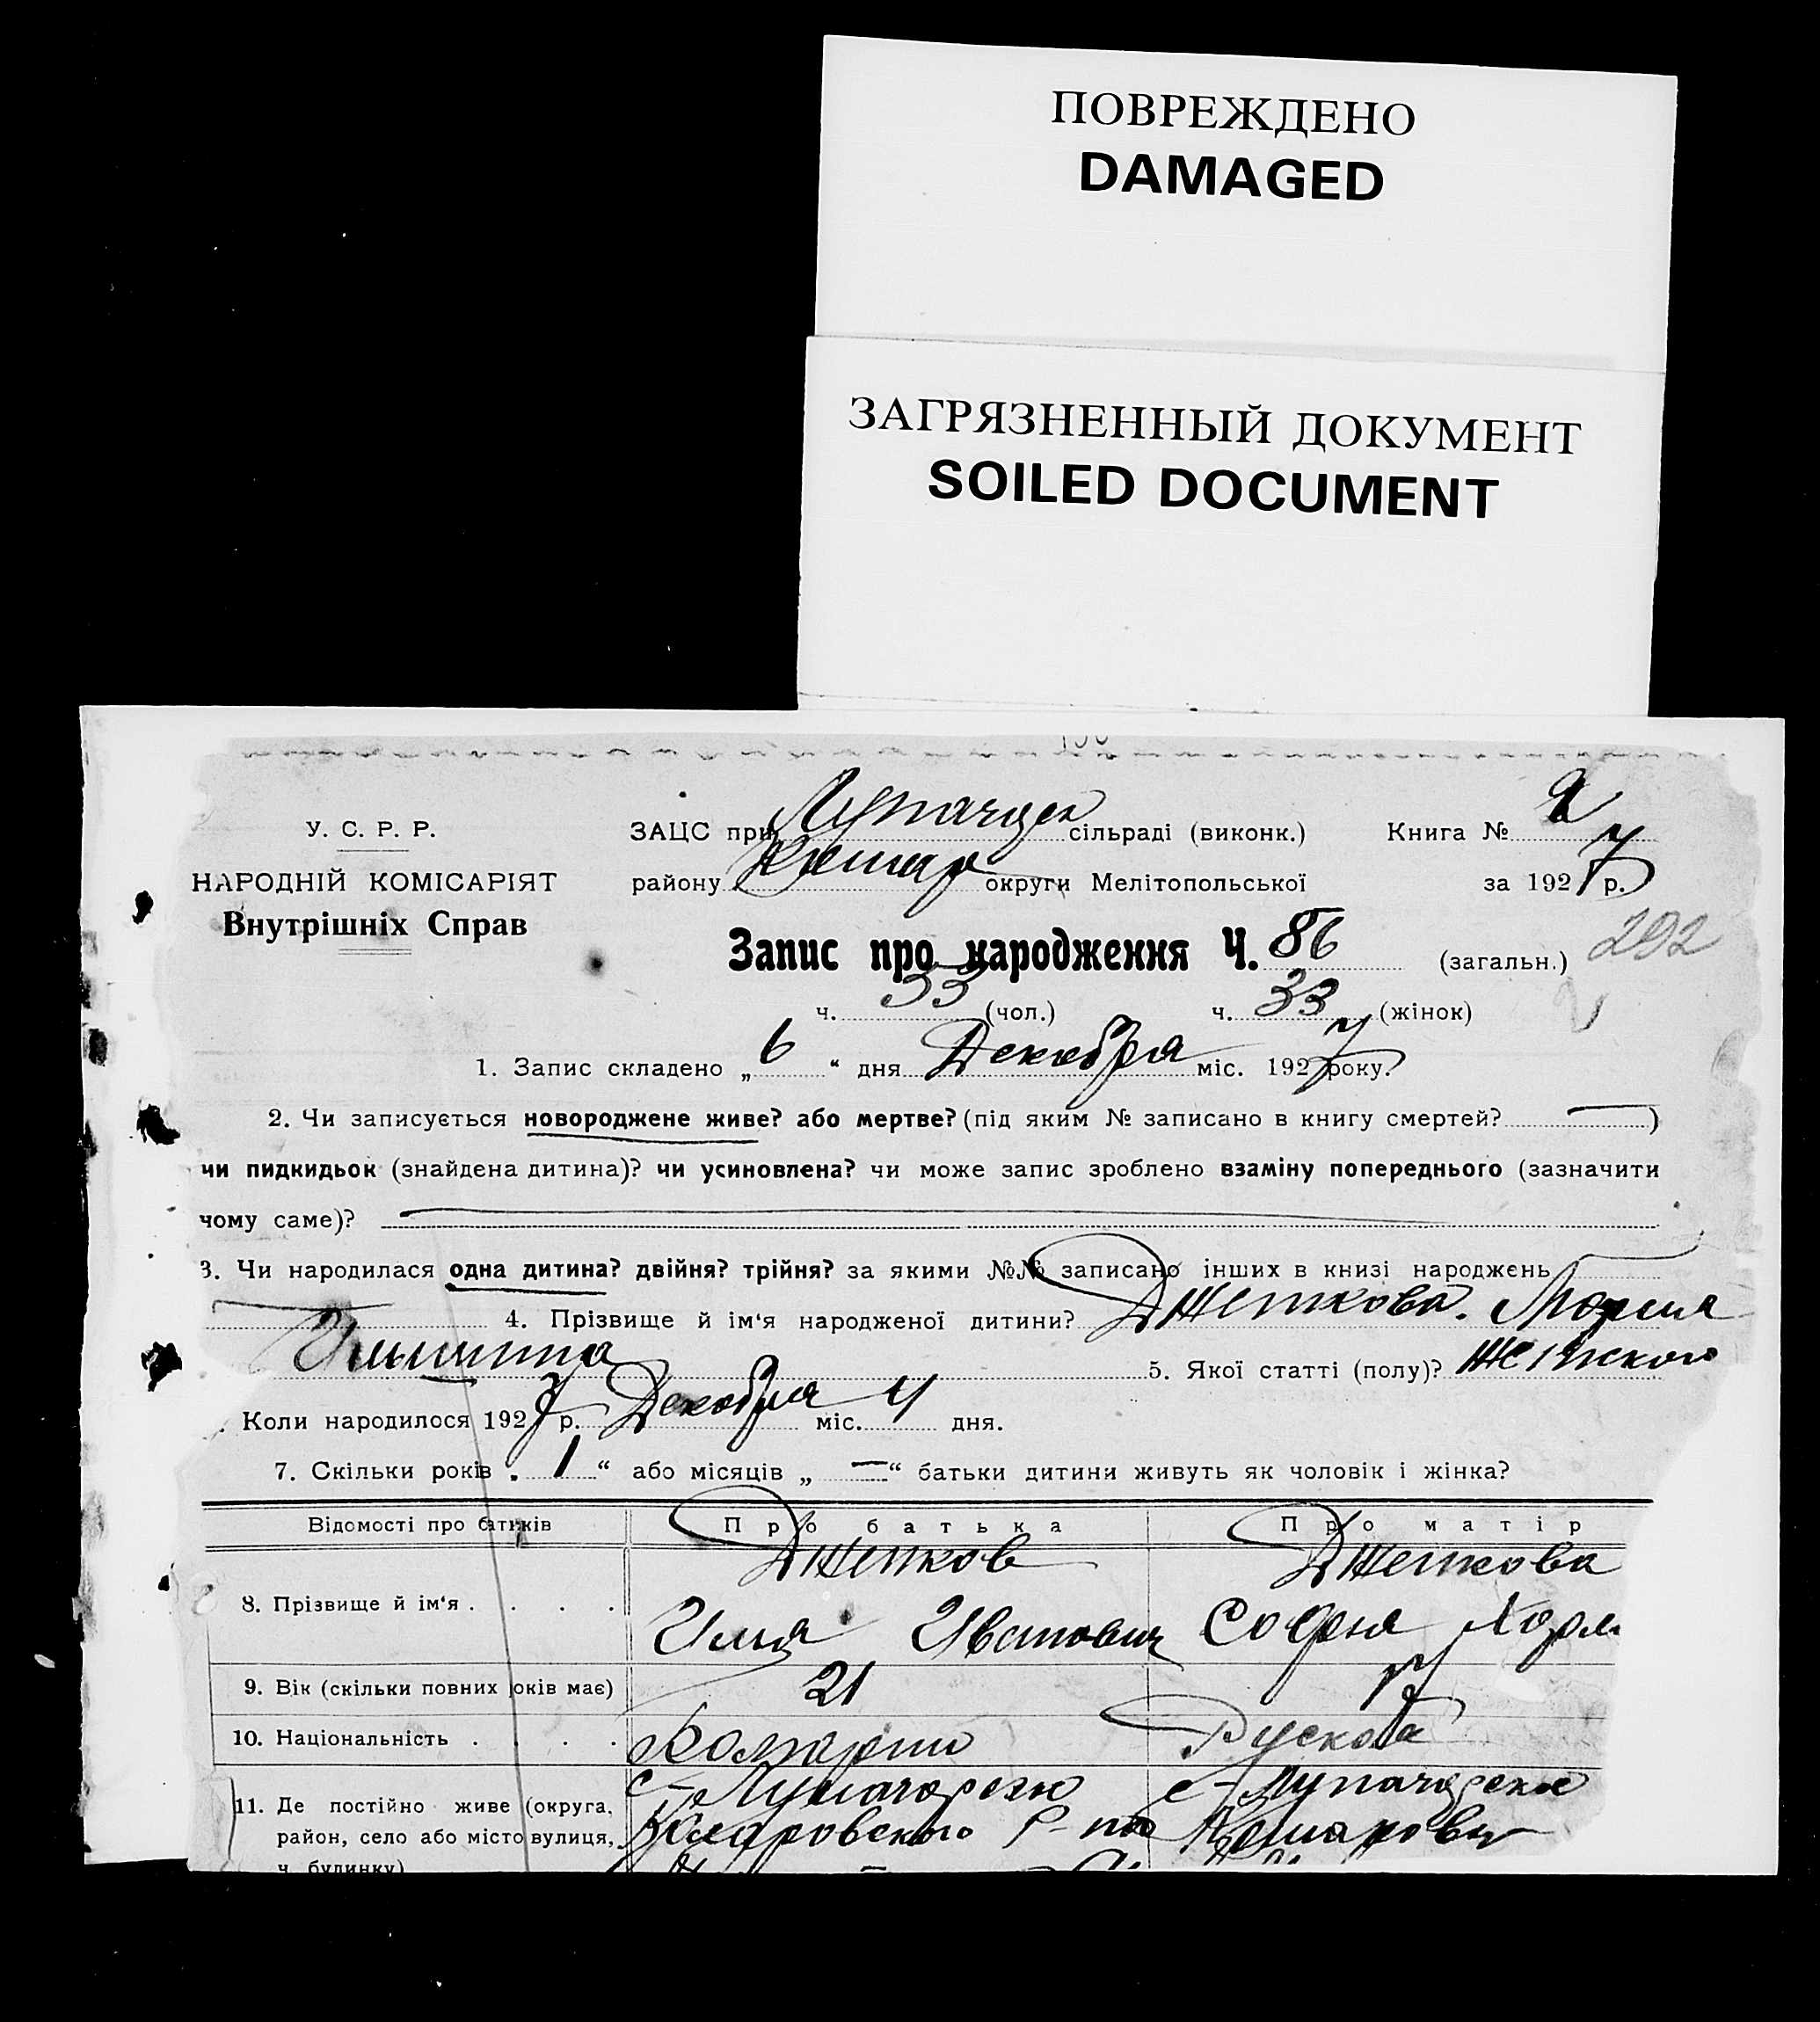 ПОВРЕЖДЕНО
DAMAGED
ЗАГРЯЗНЕННЫЙ ДОКУМЕНТ
SOILED DOCUMENT
У. С. Р. Р.
НАРОДНІЙ КОМІСАРІЯТ
Внутрішніх Справ
ЗАЦС при сільраді (виконк.) Книга №
району округи Мелітопольської за 1927 р.
Запис про народження Ч. 86 (загальн.) 292
ч. 53 (чол.) ч. 33 (жінок)
1. Запис складено „ 6 “ дня Декабря міс. 1927 року.
2. Чи записується новороджене живе? або мертве? (під яким № записано в книгу смертей? — )
чи пидкидьок (знайдена дитина)? чи усиновлена? чи може запис зроблено взаміну попереднього (зазначити
чому саме)?
3. Чи народилася одна дитина? двійня? трійня? за якими №№ записано інших в книзі народжень
4. Прізвище й ім‘я народженої дитини? Джепкова. Мария
5. Якої статті (полу)? женского
Коли народилося 1927 р. Декабря міс. 4 дня.
7. Скільки років „ 1 “ або місяців „ — “ батьки дитини живуть як чоловік і жінка?
Відомості про батьків Про батька Про матір
Джепков Джепкова
8. Прізвище й ім‘я . . . .
Илья Иванович София
9. Вік (скільки повних років має) 21 17
10. Національність . . . . Рускова
11. Де постійно живе (округа,
район, село або місто вулиця,
ч. будинку)